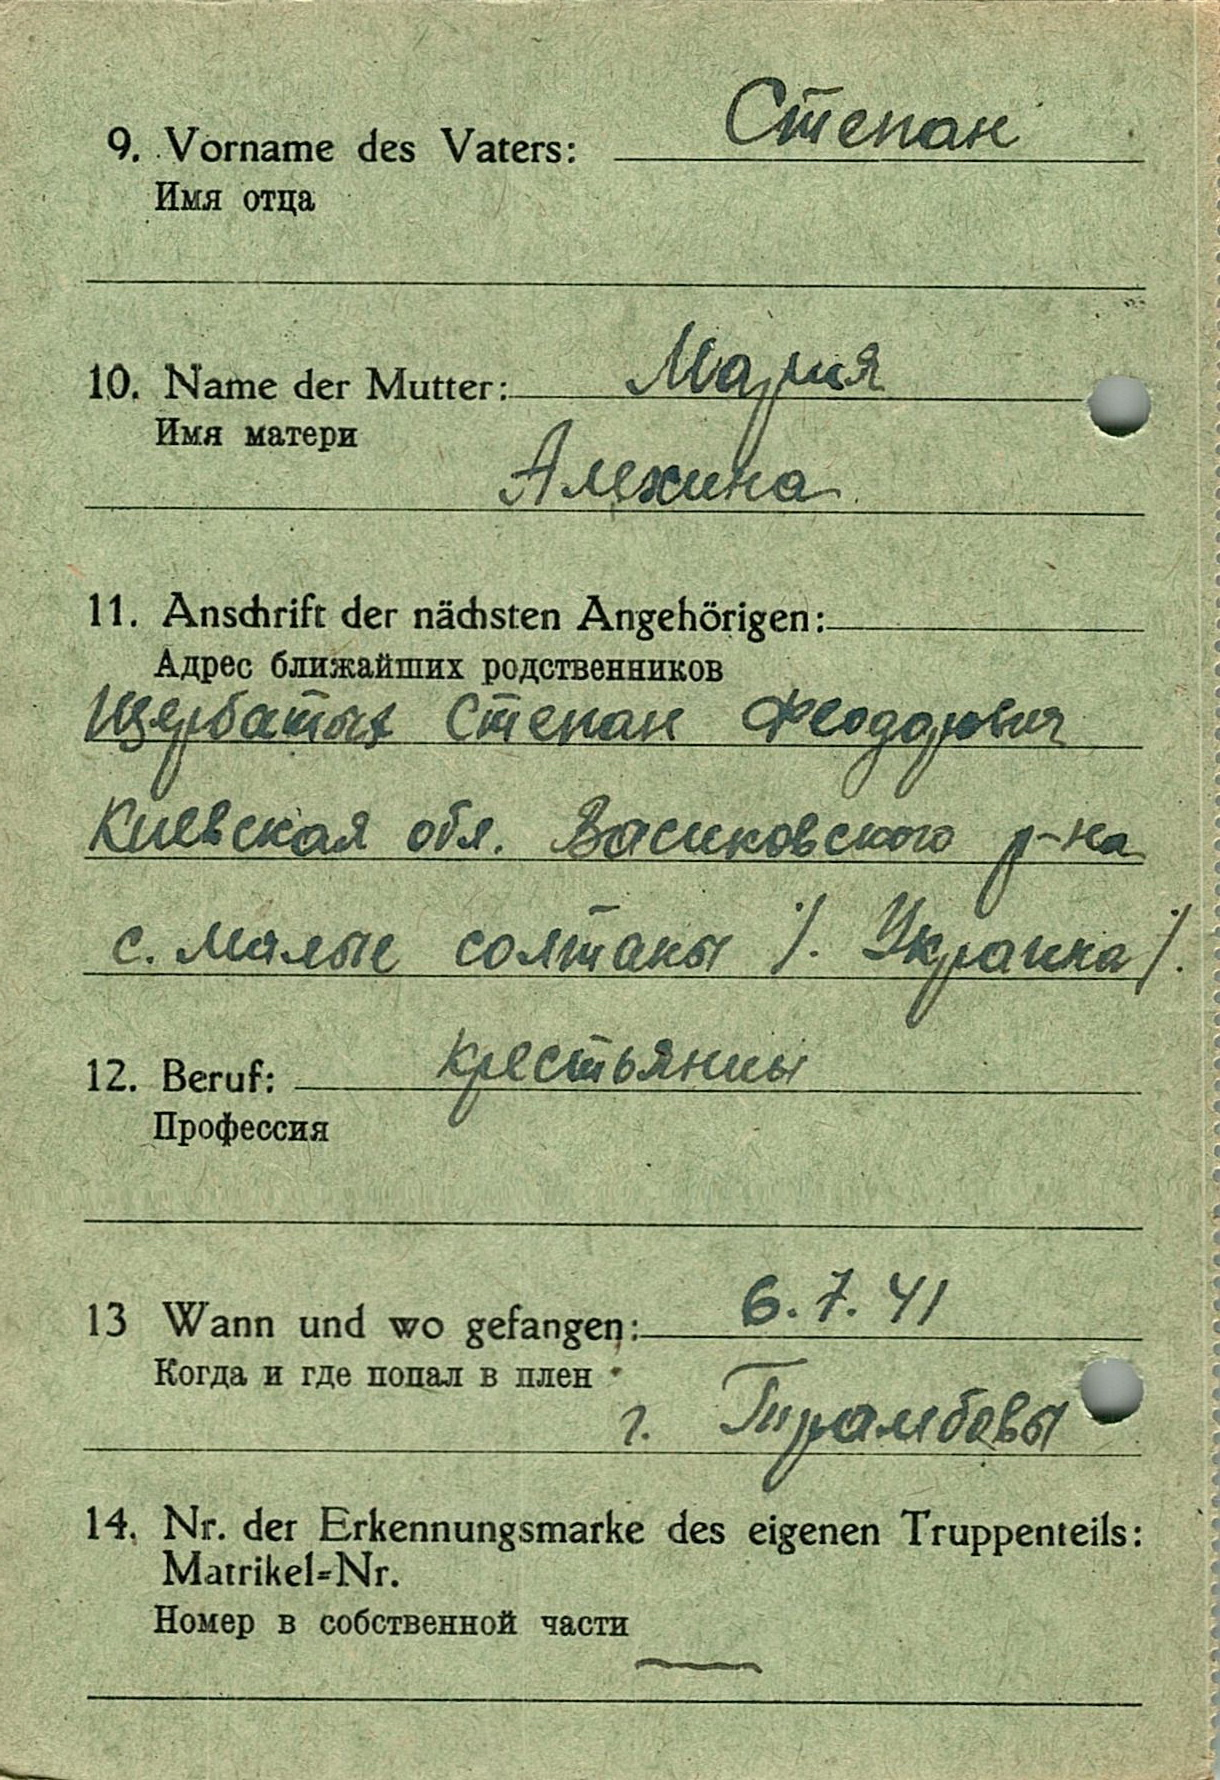 9. Vorname des Vaters: Степан
Имя отца
10. Name der Mutter: Мария
Имя матери
Алехина
11. Anschrift der nächsten Angehörigen:
Адрес ближайших родственников
Щербатых Степан Феодорович
Киевская обл. Васиковского р-на
с. Малые солтаны /. Украина /.
12. Beruf: крестьянин
Профессия
13 Wann und wo gefangen: 6.7.41
Когда и где попал в плен
г.
14. Nr. der Erkennungsmarke des eigenen Truppenteils:
Matrikel=Nr.
Номер в собственной части